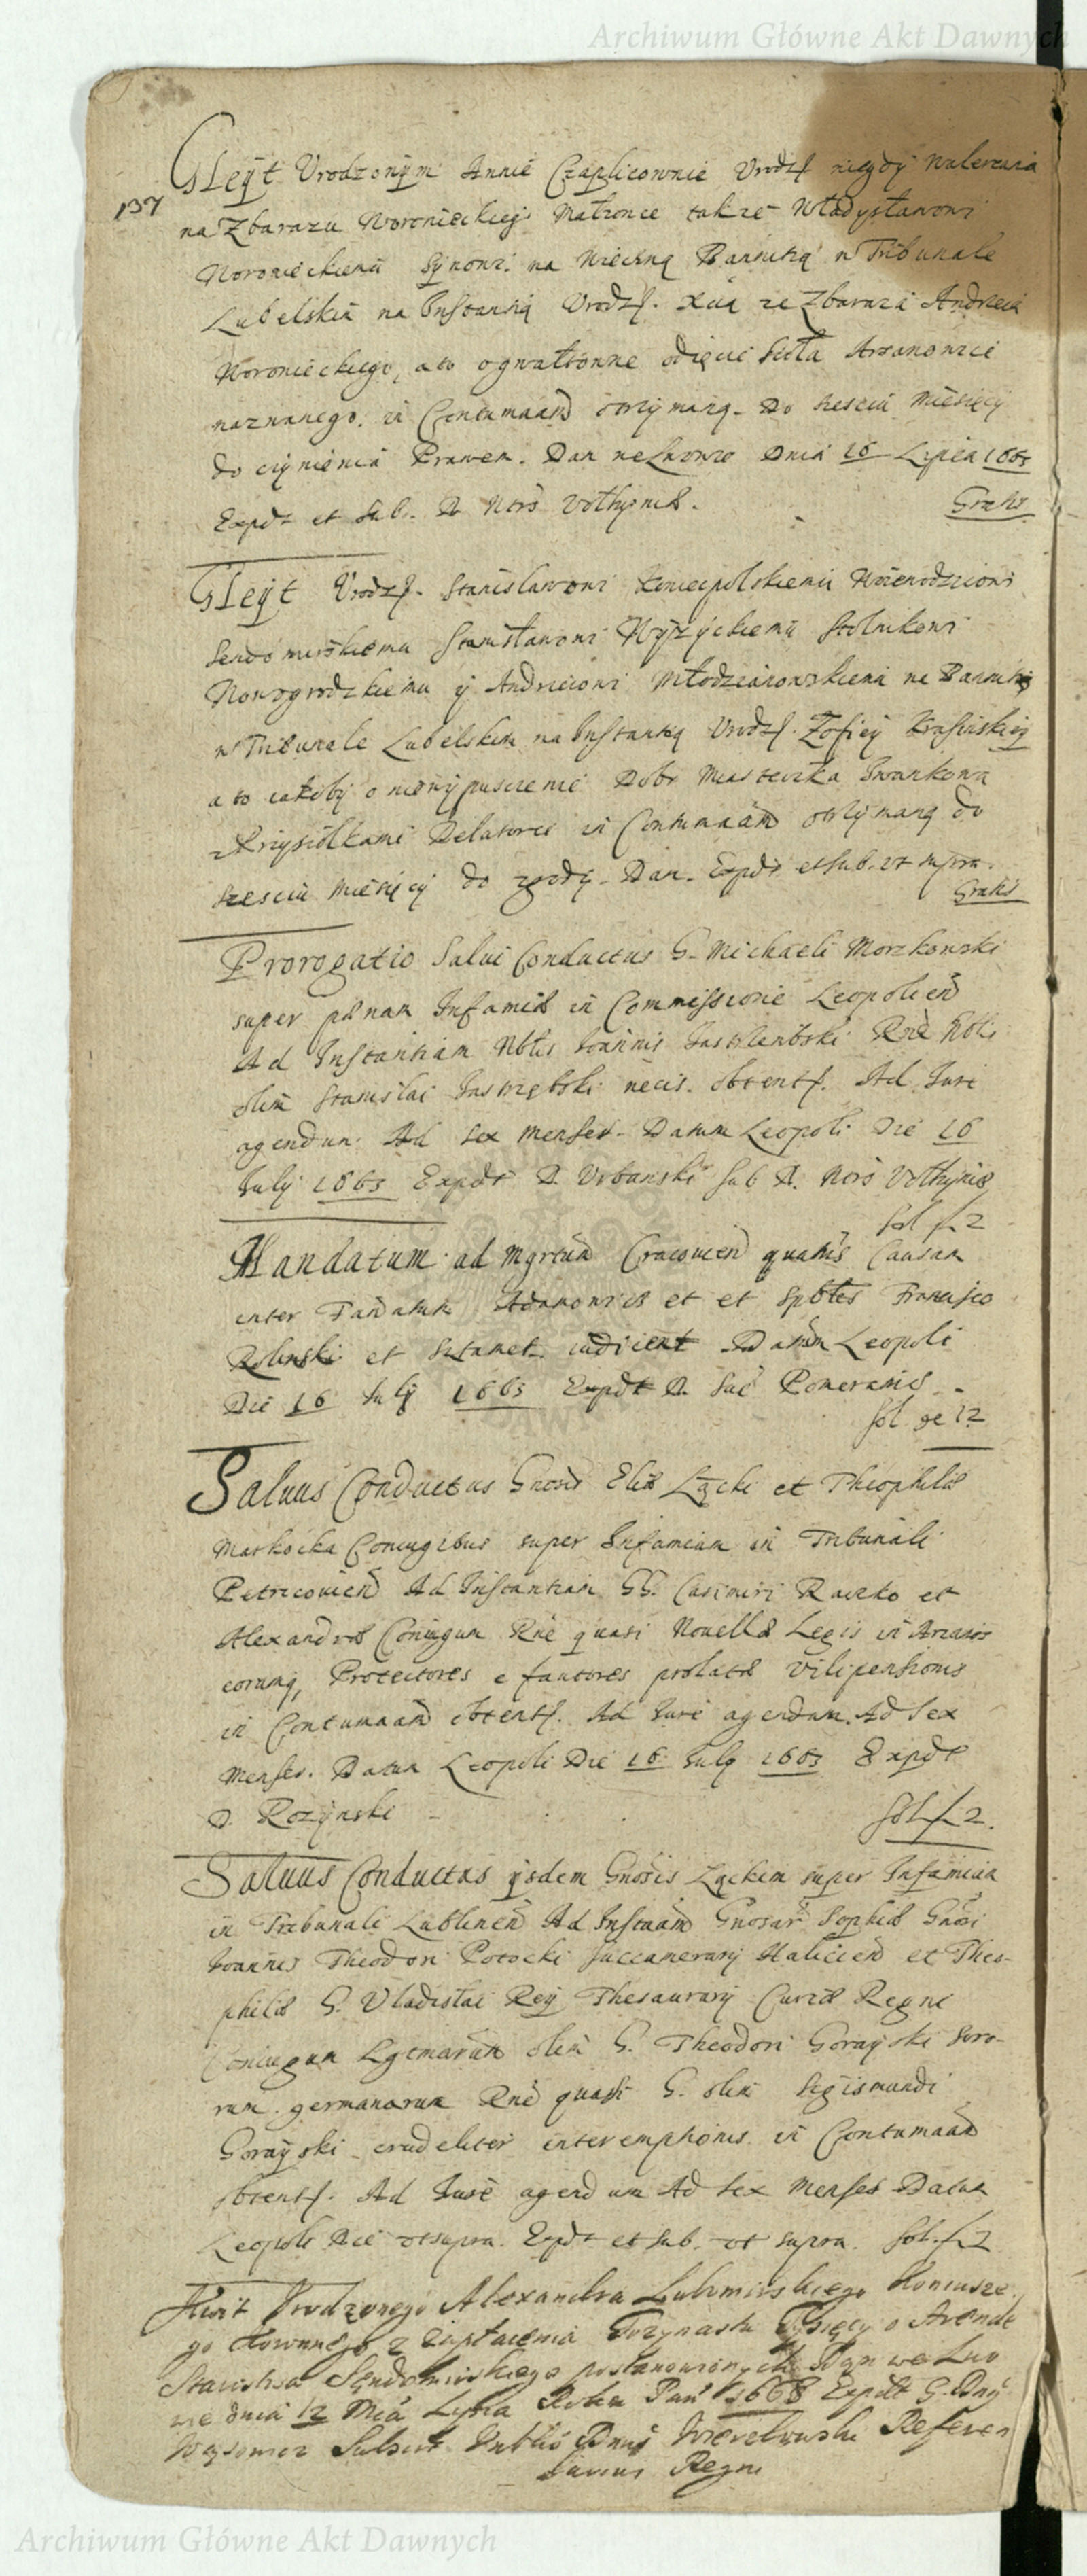 Archiwum Główne Akt Dawnych
137
Gleyt Vrodzonym Annie Czaplicownie Vrodz. niegdy Waleriana
na Zbarazu Woronieckiej Małzonce takze Władysławowi
Woronieckiemu Synowi na Wieczną Bannitią w Tribunale
Lubelskim na Instantią Vrodz. Xcia ze Zbaraza Andrzeia
Woronieckiego, a to o gwałtowne odięcie Sioła
nazwanego in Contumaciam otrzymaną. Do szesciu Miesięcy
do czynienia Prawem. Dan we Lwowie Dnia 16 Lipca 1663
Expdt et sub. D. Nris Volhyniae.
Gratis
Gleyt Vrodz. Stanisławowi Koniecpolskiemu Woiewodzicowi
Sendomirskiemu Stanisławowi Wyżyckiemu Stolnikowi
Nowogrodzkiemu y Andrzeiowi Młodzianowskiemu na Bannitią
w Tribunale Lubelskim na Instantią Vrodz. Zofiey Krasinskiey
a to iakoby o niewypuszczenie Dobr Miasteczka Iwankowa
z Przysiołkami Delatorce in Contumaciam otrzymaną do
szesciu Miesięcy do zgody. Dan. Expdt et sub. vt supra.
Gratis
Prorogatio Salui Conductus G. Michaeli Morzkowski
super paenam Infamiae in Commissione Leopolien
Ad Instantiam Nblis Ioannis Iastrzembski Rne Nblis
olim Stanislai Iastrzębski necis obtent. Ad Iure
agendum Ad sex menses. Datum Leopoli Die 16
July 1663 Expdt D. Vrbanski sub D. Nris Volhyniae
Sol f. 2
Mandatum ad Mgrtum Cracovien quatenus Causam
inter Adamowicz et et Spbles Francisco
Rolinski et iudicent Datum Leopoli
Die 16 July 1663 Expdt D. Pomeranie
Sol 12
Saluus Conductus Gnosis Eliae Łącki et Theophilae
Markocka Coniugibus super Infamiam in Tribunali
Petricouien Ad Instantiam GG. Casimiri Raczko et
Alexandrae Coniugum Rne quasi Nouellae Legis in Arianos
eorumq, Protectores e fautores prolatae vilipensionis
in Contumaciam obtent. Ad Iure agendum. Ad Sex
Menses. Datum Leopoli Die 16 July 1663 Expdt
D. Rozynski
Sol f. 2.
Saluus Conductus ysdem Gnosis Łąckim super Infamiam
in Tribunali Lublinen Ad Instaam Gnosar Sophiae Gnosi
Ioannis Theodori Potocki Succamerarij Halicien et Theo-
philae G. Vladislai Rey Thesaurarij Curiae Regni
Coniugum Lgtmarum olim G. Theodori Gorayski Soro-
rum germanarum Rne quasi G. olim Sigismundi
Gorayski crudeliter interemptionis in Contumaciam
obtent. Ad Iure agendum Ad sex Menses Datum
Leopoli Die vt supra. Expdt et sub. vt supra. Sol. f. 2
Kwit Vrodzonego Alexandra Lubomirskiego Koniusze
go Koronnego z zapłacenia Trzynastu Tysięcy o Arende
Starostwa Sendomirskiego postanowionych Dan we Lwo
wie dnia 12 Mca Lipca Roku Pan 1663 Expdt G. Dny
Subscr Referen
darius Regni
Archiwum Główne Akt Dawnych